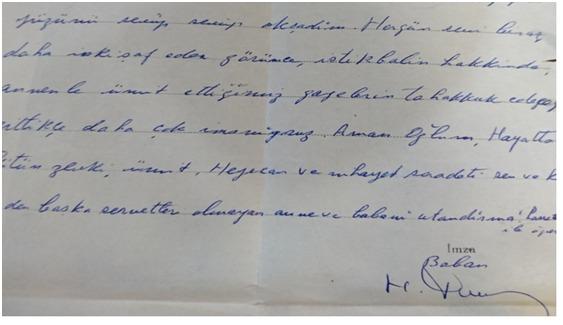 yüzünü sevip sevip okşadım. Hergün seni biraz
daha inkişaf eder görünce, istikbalin hakkında,
annenle ümit ettiğimiz gayelerin tahakkuk edeceği
gittikçe daha çok inanıyoruz. Aman Oğlum, Hayatta
bütün zevki, ümit, Heyecan ve nihayet saadeti sen ve
den başka servetler olmayan anne ve babanı utandırma!
ile
İmza
Baban
H.